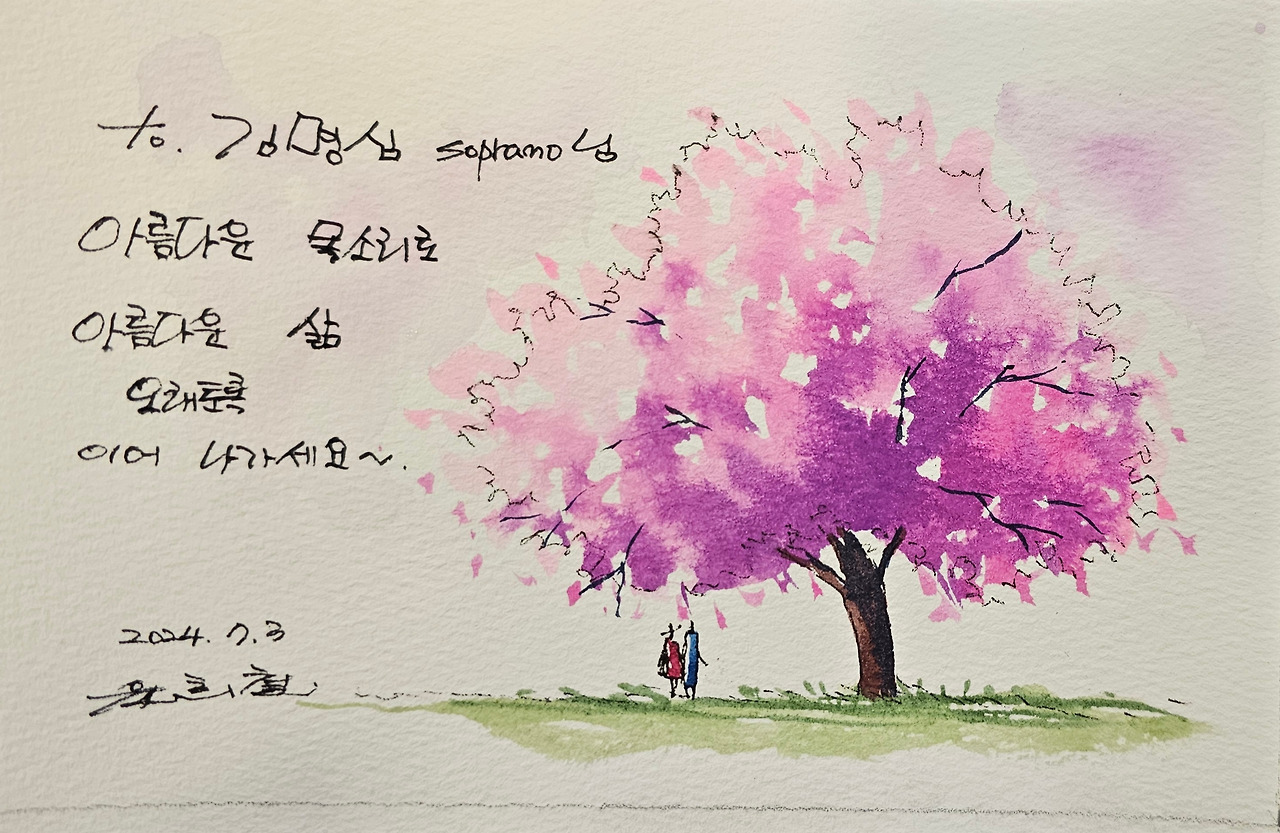 to. 김명심 soprano님
아름다운 목소리로
아름다운 삶
오래토록
이어 나가세요~.
2024. 7. 3